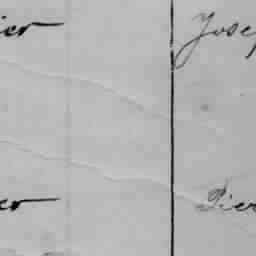 ier Josep
er Pier